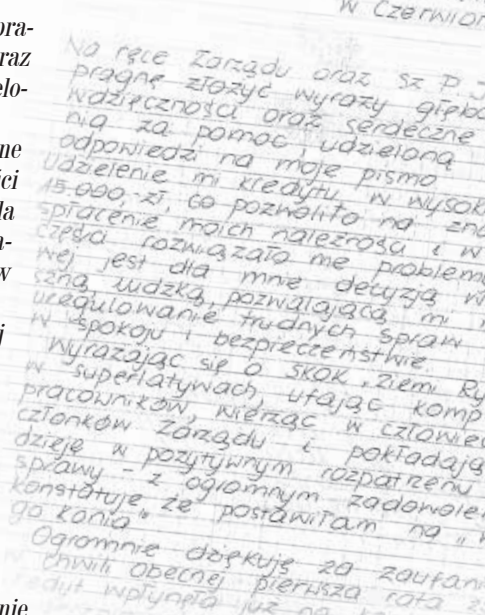 w Czerwion
Na ręce Zarządu oraz Sz P J
pragnę złożyć wyrazy głębo
wdzięczności oraz serdeczne
nia za pomoc i udzieloną
odpowiedzi na moje pismo
Udzielenie mi kredytu w wysok
15.000,-zł, co pozwoliło na zna
spłacenie moich należności i w
części rozwiązało me problemy
wej jest dla mnie decyzją w
szną, ludzką, pozwalającą mi
uregulowanie trudnych spraw
w spokoju i bezpieczeństwie.
Wyrażając się o SKOK "Ziemi Ry
w superlatywach, ufając komp
pracowników, wierząc w człowiec
członków Zarządu i pokładają
dzieję w pozytywnym rozpatrzeniu
sprawy - z ogromnym zadowole
konstatuję że postawiłam na "
go konia"
Ogromnie dziękuję za zaufani
w chwili obecnej pierwsza rata z
redyt wpłynęła już na
ora-
raz
elo-
ne
ści
la
a-
w
j
nie